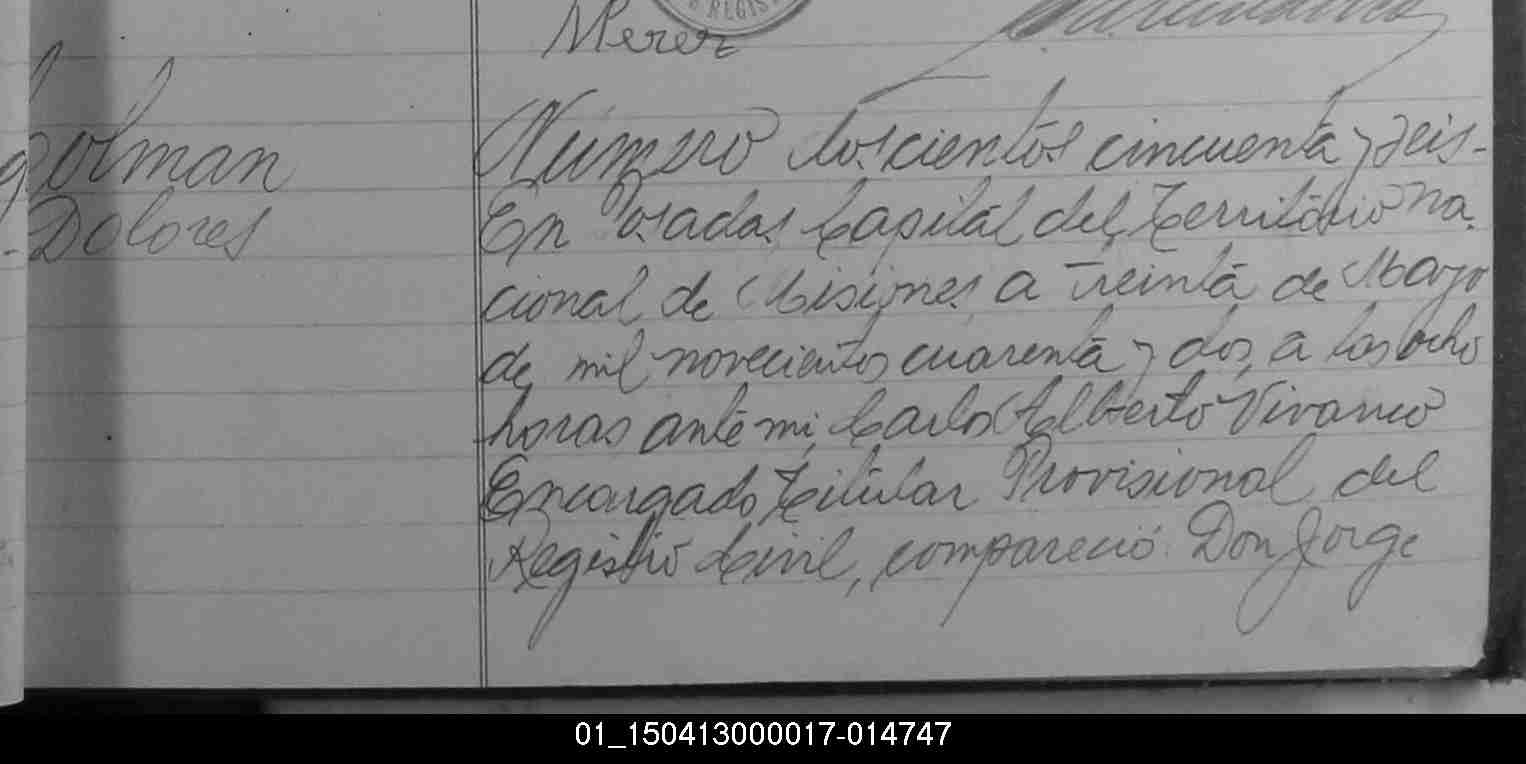 REGIS
Merer
holman
Dolores
Número doscientos cincuenta y seis-
En Posadas, Capital del Territorio na-
cional de Misiones, a treinta de Mayo
de mil novecientos cuarenta y dos, a las ocho
horas ante mi, Carlos Alberto Vivanco
Encargado Titular Provisional del
Registro Civil, compareció: Don Jorge
01_150413000017-014747